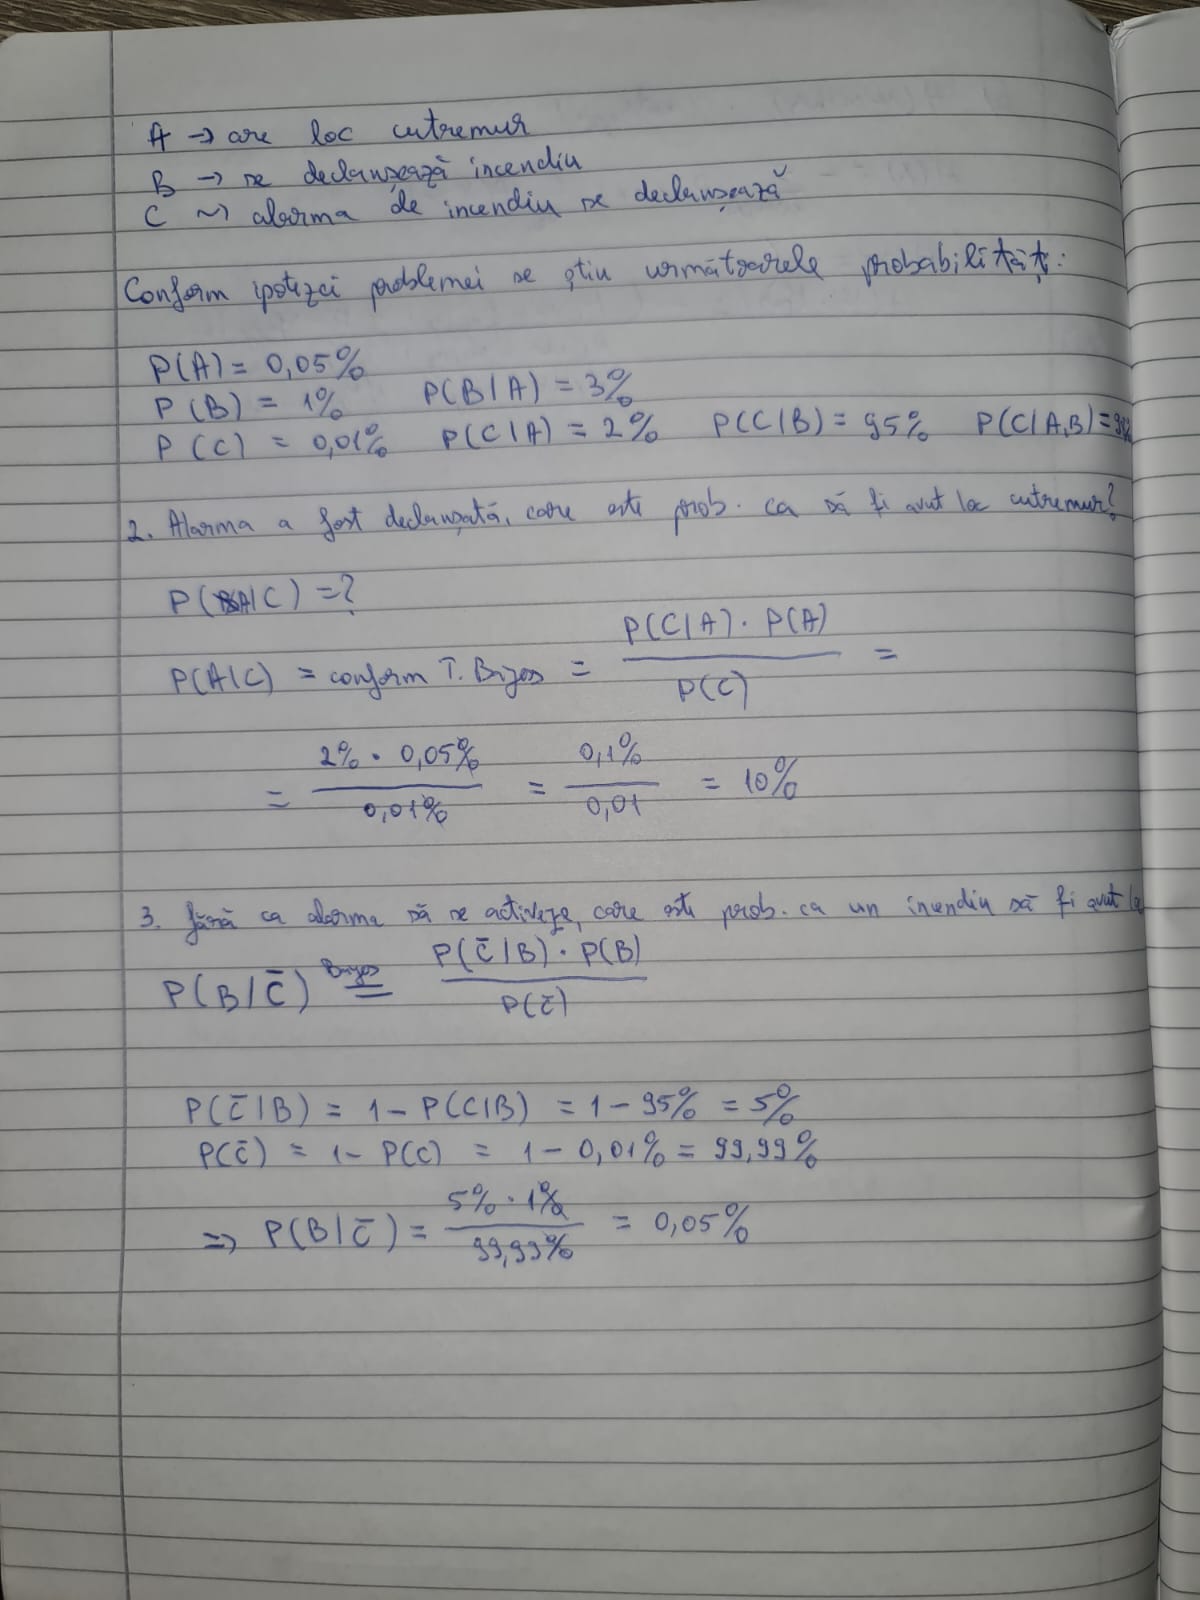 A → are loc cutremur
B → se declanșează incendiu
C ~) alarma de incendiu se declanșează
Conform ipotezei problemei se știu următoarele probabilităț:
P(A) = 0,05%
P(B) = 1% P(B|A) = 3%
P(C) = 0,01% P(C|A) = 2% P(C|B) = 95% P(C|A,B) =
2. Alarma a fost declanșată, care este prob. ca să fi avut loc cutremur?
P(A|C) = ?
P(A|C) = conform T. Bayes = P(C|A) · P(A) / P(C) =
= 2% · 0,05% / 0,01% = 0,1% / 0,01 = 10%
3. fără ca alarma să se activeze, care este prob. ca un incendiu să fi avut lo
P(B/C̄) Bayes = P(C̄|B) · P(B) / P(C̄)
P(C̄|B) = 1 - P(C|B) = 1 - 95% = 5%
P(C̄) = 1 - P(C) = 1 - 0,01% = 99,99%
=> P(B|C̄) = 5% · 1% / 99,99% = 0,05%